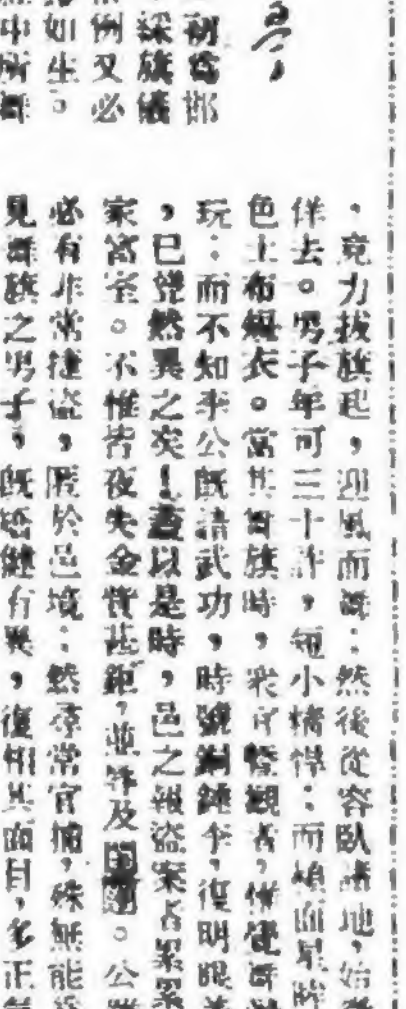 初爲邯
綵旗儀
例又必
如生。
中所舞
，竟力拔旗起，迎風而舞：然後從容臥諸地，始
佯去。男子年可三十許，短小精悍：而面星眸
色土布短衣。當其舞旗時，衆暨觀者，僅覺舞
玩：而不知李公既諳武功，時號銅錘李，復明眼
，已聳然異之矣！蓋以是時，邑之報盜案者累累
家富室。不惟皆夜失金寶甚鉅，並辱及。公
必有非常捷盜，匿於邑境：然尋常官捕，殊無能
見舞旗之男子，既矯健有異，復相其面目，多正